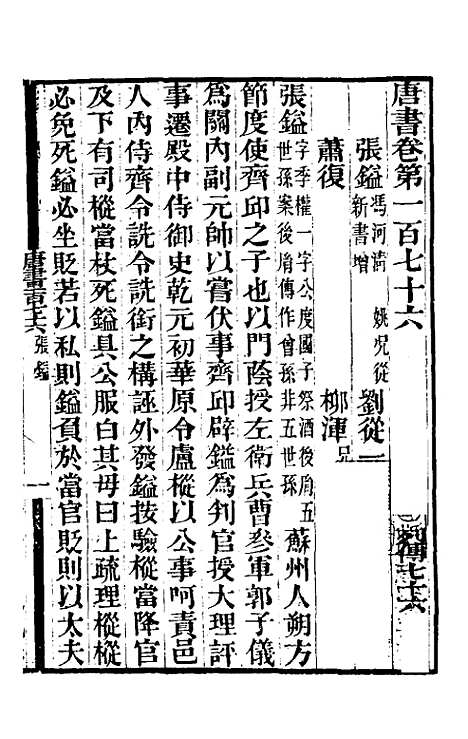 唐書卷第一百七十六
列傳七十六
張鎰 馮河清 姚況從
新書增
劉從一
蕭復
柳渾 兄
張鎰 字季權一字公度國子祭酒後胤五
世孫案後胤傳作曾孫非五世孫
蘇州人朔方
節度使齊邱之子也以門蔭授左衛兵曹參軍郭子儀
為關內副元帥以嘗伏事齊邱辟鎰為判官授大理評
事遷殿中侍御史乾元初華原令盧樅以公事呵責邑
人內侍齊令詵令詵銜之構誣外發鎰按驗樅當降官
及下有司樅當杖死鎰具公服白其母曰上疏理樅樅
必免死鎰必坐貶若以私則鎰負於當官貶則以太夫
唐書百七十六 張鎰
一